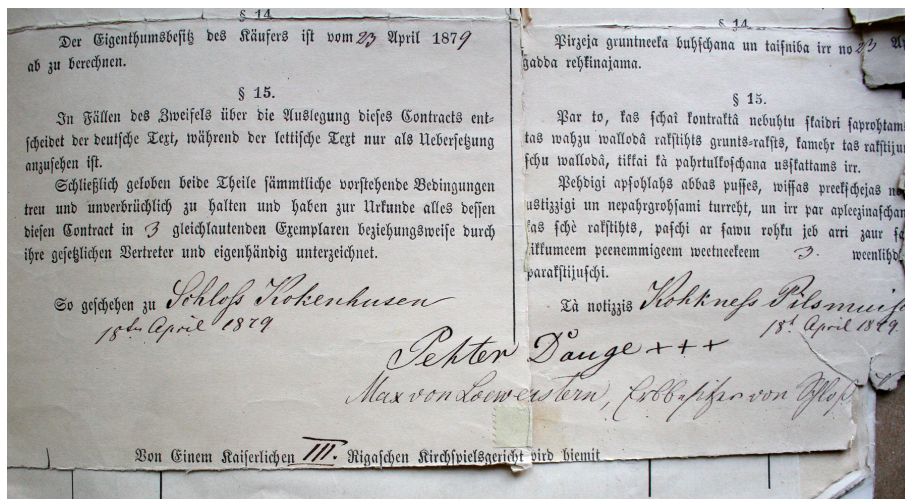 § 14.
Der Eigenthumsbesitz des Käufers ist vom 23 April 1879
ab zu berechnen.
§ 15.
In Fällen des Zweifels über die Auslegung dieses Contracts ent-
scheidet der deutsche Text, während der lettische Text nur als Uebersetzung
anzusehen ist.
Schließlich geloben beide Theile sämmtliche vorstehende Bedingungen
treu und unverbrüchlich zu halten und haben zur Urkunde alles dessen
diesen Contract in 3 gleichlautenden Exemplaren beziehungsweise durch
ihre gesetzlichen Vertreter und eigenhändig unterzeichnet.
So geschehen zu Schloss Kokenhusen
18ten April 1879
§ 14.
Pirzeja gruntneeka buhschana un taisniba irr no 23 Ap
gadda rehkinajama.
§ 15.
Par to, kas schai kontraktâ nebuhtu skaidri saprohtams
tas wahzu wallodâ rakstihts grunts-raksts, kamehr tas rakstijum
schu wallodâ, tikkai kà pahrtulkoschana usskattams irr.
Pehdigi apsohlahs abbas pusses, wissas preekschejas no
ustizzigi un nepahrgrohsami turreht, un irr par apleezinaschan
kas schè rakstihts, paschi ar sawu rohku jeb arri zaur sa
likkumeem peenemmigeem weetneekeem 3. weenlihd
parakstijuschi.
Tà notizzis Kohkness Pilsmuisc
18t April 1879.
Pehter Dauge +++
Max von Loewerstern, Erbbesitzer von Schloß
Von Einem Kaiserlichen III. Rigaschen Kirchspielsgericht wird hiemit